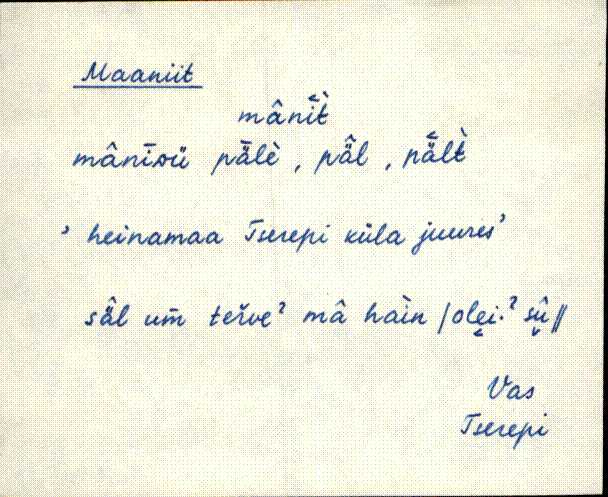 Maaniit
mânìt̀
mânīsü pǟlè, pǟl, pǟlt̀
‚ heinamaa Tserepi küla juures’
säl um̄ terve? mâ haìn /olei.? sû//
Vas
Tserepi